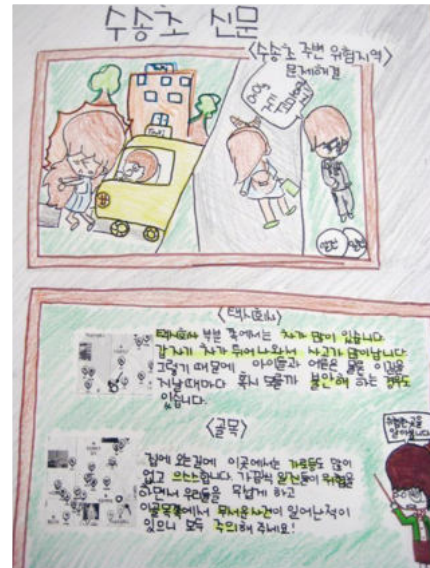 수송초 신문
<수송초 주변 위험지역>
문제해결
<택시회사>
택시회사 부분 쪽에서는 차가 많이 있습니다
갑자기 차가 튀어나와서 사고가 많이납니다.
그렇기 때문에 아이들과 어른은 물론 이길을
지날때마다 혹시 모를까 불안해 하는
있습니다.
<골목>
집에 오는길에 이곳에서는 가로등도 많이
없고 으스스합니다. 가끔씩 일진들이 위협을
하면서 우리들을 무섭게 하고
이골목쪽에서 무서운사건이 일어난적이
있으니 모두 주의해 주세요!